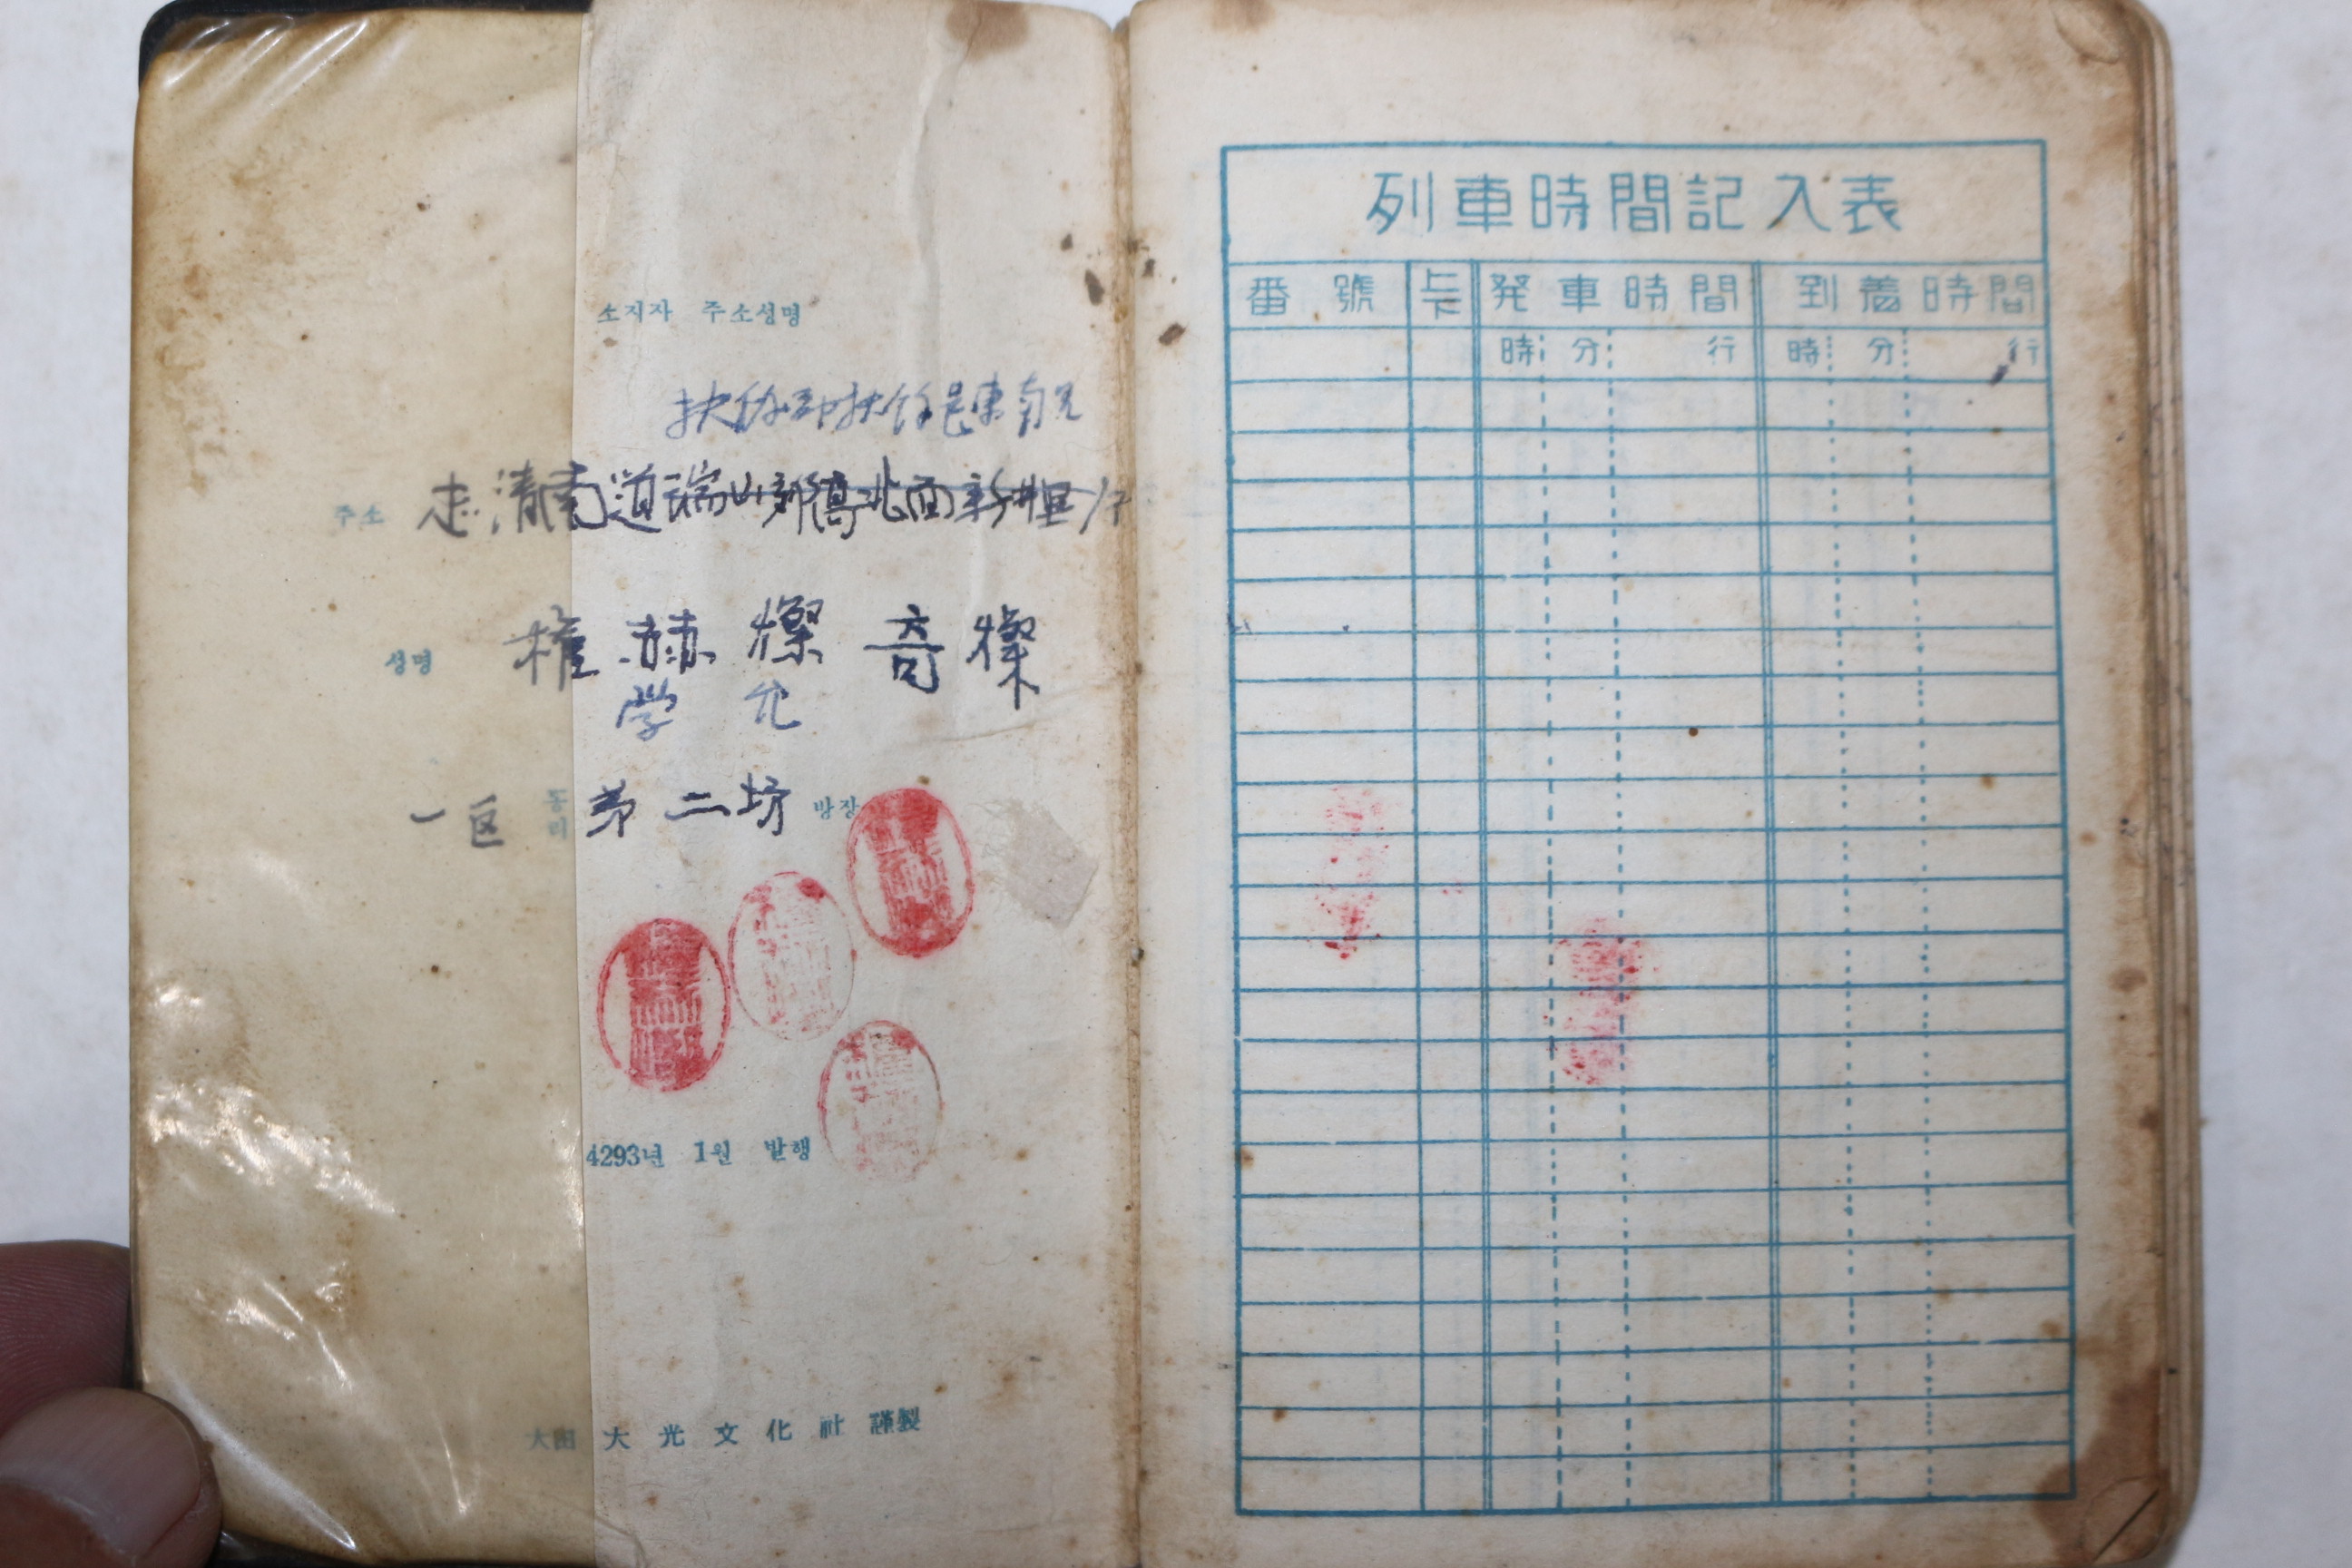 소지자 주소성명
扶餘郡扶餘邑東南里
주소 忠清南道瑞山郡 北面 新井里
성명 權赫燦 奇燦
学允
一区 동리 第二坊 방장
4293년 1월 발행
大田 大光文化社 謹製
列車時間記入表
番號 上下 発車時間 到着時間
時 分 行 時 分 行